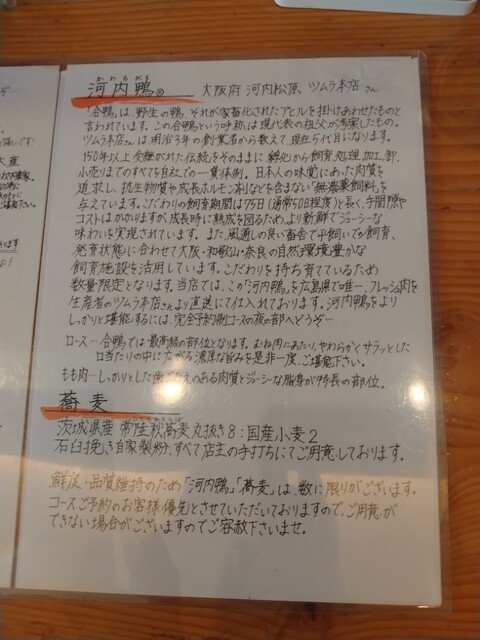 かわちがも
河内鴨® 大阪府 河内松原、ツムラ本店さん
「合鴨」は、野生の鴨、それが家畜化されたアヒルを掛けあわせたものと
言われています。この合鴨という呼称は現代表の祖父が考案したもの。
ツムラ本店さんは明治3年の創業者から数えて、現在5代目になります。
150年以上受継がれた伝統をそのままに孵化から飼育、処理、加工、卸、
小売りまでのすべてを自社での一貫体制。日本人の味覚にあった肉質を
追求し、抗生物質や成長ホルモン剤などを含まない「無薬飼料」を
与えています。こだわりの飼育期間は75日(通常50日程度)と長く、手間隙や
コストはかかりますが、成長時に熟成を図るため、より新鮮でジューシーな
味わいを実現されています。また、風通しの良い畜舎で平飼いで飼育、
発育状態に合わせて大阪・和歌山・奈良の自然環境豊かな
飼育施設を活用しています。こだわりを持ち育てているため
数量限定となります。当店では、この「河内鴨」を広島県で唯一、フレッシュ肉を
生産者のツムラ本店さんより直送にて仕入れております。河内鴨をより
しっかりと堪能するには、完全予約制コースの夜の部へどうぞ…
ロース…合鴨では最高級の部位となります。むね肉にあたり、やわらかくサラッとした
口当たりの中に広がる濃厚な旨みを是非一度、ご堪能下さい。
もも肉…しっかりとした歯ごたえのある肉質とジーシーな脂身が特長の部位。
蕎麦
茨城県産 常陸秋蕎麦丸抜き8:国産小麦2
石臼挽き自家製粉、すべて店主の手打ちにてご用意しております。
鮮度・品質維持のため「河内鴨」「蕎麦」は、数に限りがございます。
コースご予約のお客様優先とさせていただいておりますので、ご用意が
できない場合がございますのでご容赦下さいませ。